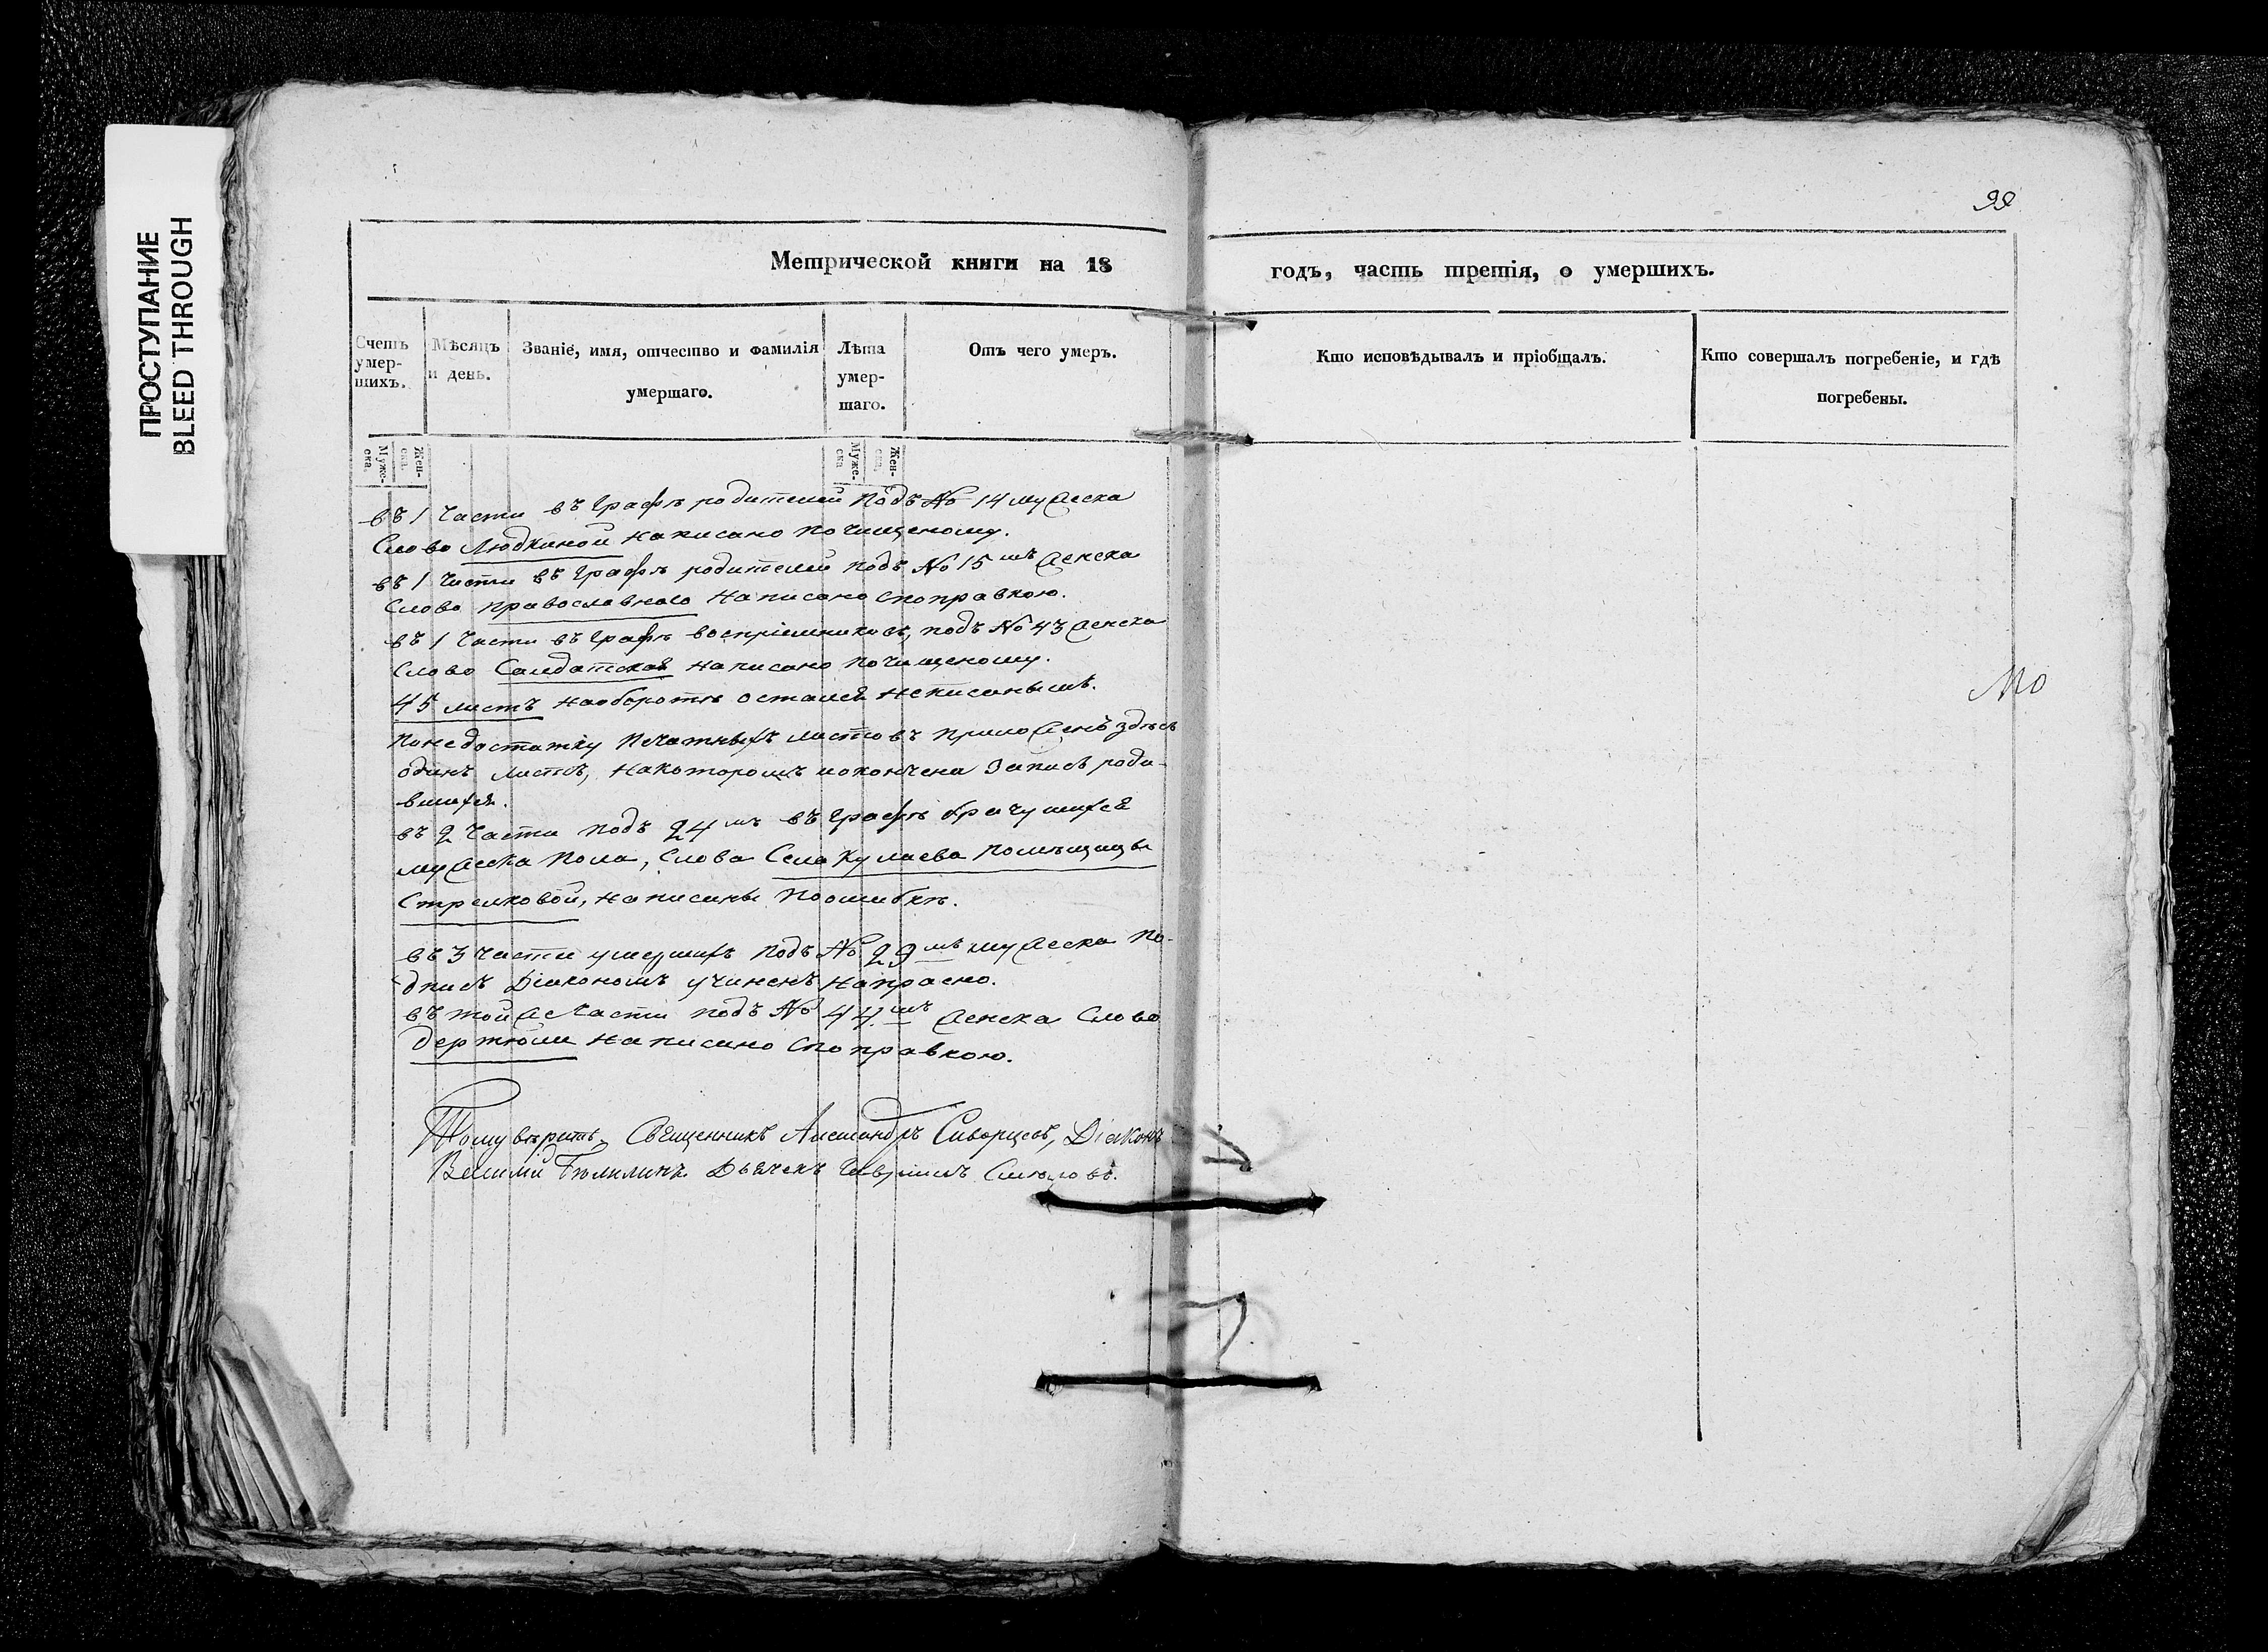 ПРОСТУПАНИЕ
BLEED THROUGH
99
Метрической книги на 18 годъ, часть третія, о умершихъ.
Счетъ умер-шихъ.
Мѣсяцъ и день.
Званіе, имя, отчество и фамилія умершаго.
Лѣта умер-шаго.
Отъ чего умеръ.
Кто исповѣдывалъ и пріобщалъ.
Кто совершалъ погребеніе, и гдѣ погребены.
Муже-ска.
Жен-ска.
Муже-ска
Жен-ска.
въ 1 части въ графѣ родителей подъ № 14 мужеска
Слово Людкиной написано по чищеному.
въ 1 части въ графѣ родителей подъ № 15мъ женска
Слово православнаго написано споправкою.
въ 1 части въ графѣ воспріемниковъ, подъ № 43 женска
Слово Салдатская написано по чищеному.
45 листъ наоборотѣ остался неписанымъ.
понедостатку печатныхъ листовъ приложенъ здѣсь
одинъ листъ, накоторомъ и окончена запись роди-
вшихся.
въ 2 части подъ 24мъ въ графѣ брачушихся
мужеска пола, слова Села Кулаева помѣщицы
Стрелковой, написаны поошибкѣ.
въ 3 части умершихъ подъ № 29мъ мужеска по-
дпись Діакономъ учиненъ напрасно.
въ тойже части подъ № 44мъ женска Слово
написано споправкою.
Священникъ Діаконъ
Дьячекъ